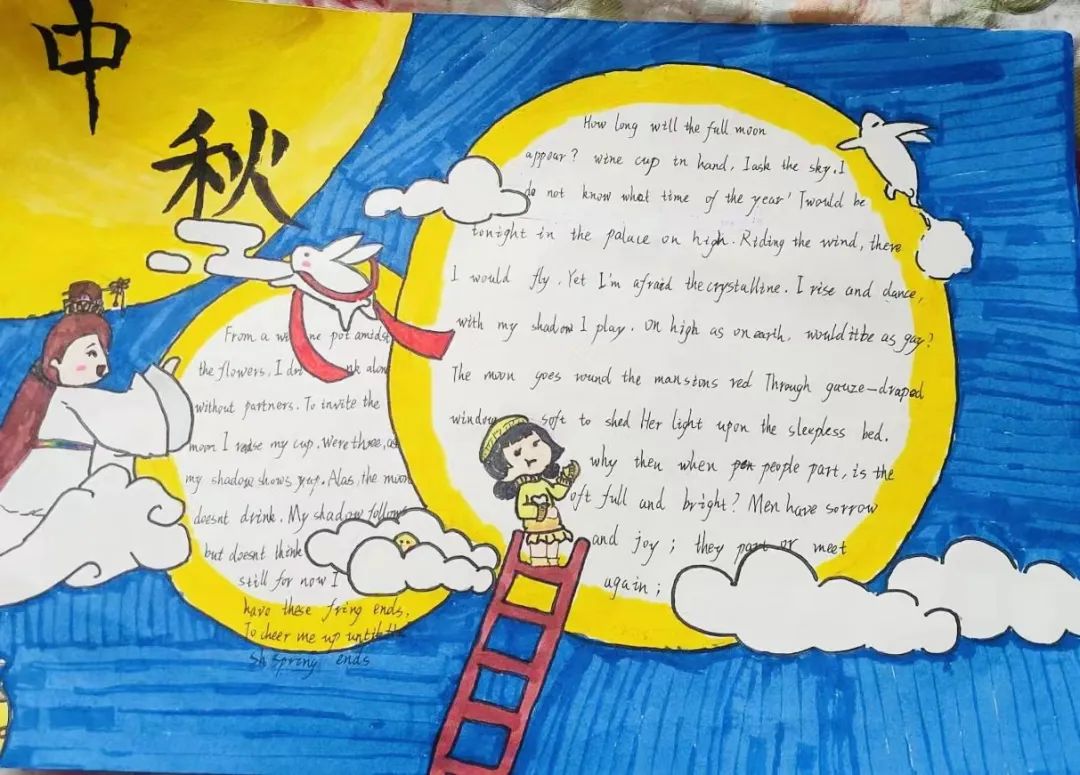 中
秋
How long will the full moon
appear? wine cup in hand, I ask the sky. I
do not know what time of the year 'Twould be
tonight in the palace on high. Riding the wind, there
I would fly. Yet I'm afraid the crystalline. I rise and dance,
with my shadow I play. On high as on earth, would it be as gay?
The moon goes round the mansions red Through gauze-draped
window soft to shed Her light upon the sleepless bed.
why then when people part, is the
oft full and bright? Men have sorrow
and joy; they part or meet
again;
From a wine pot amidst
the flowers, I drink alone
without partners. To invite the
moon I raise my cup. Were three, as
my shadow shows yup. Alas, the moon
doesnt drink. My shadow follow
but doesnt think
still for now I
have these fring ends,
To cheer me up until the
sh spring ends